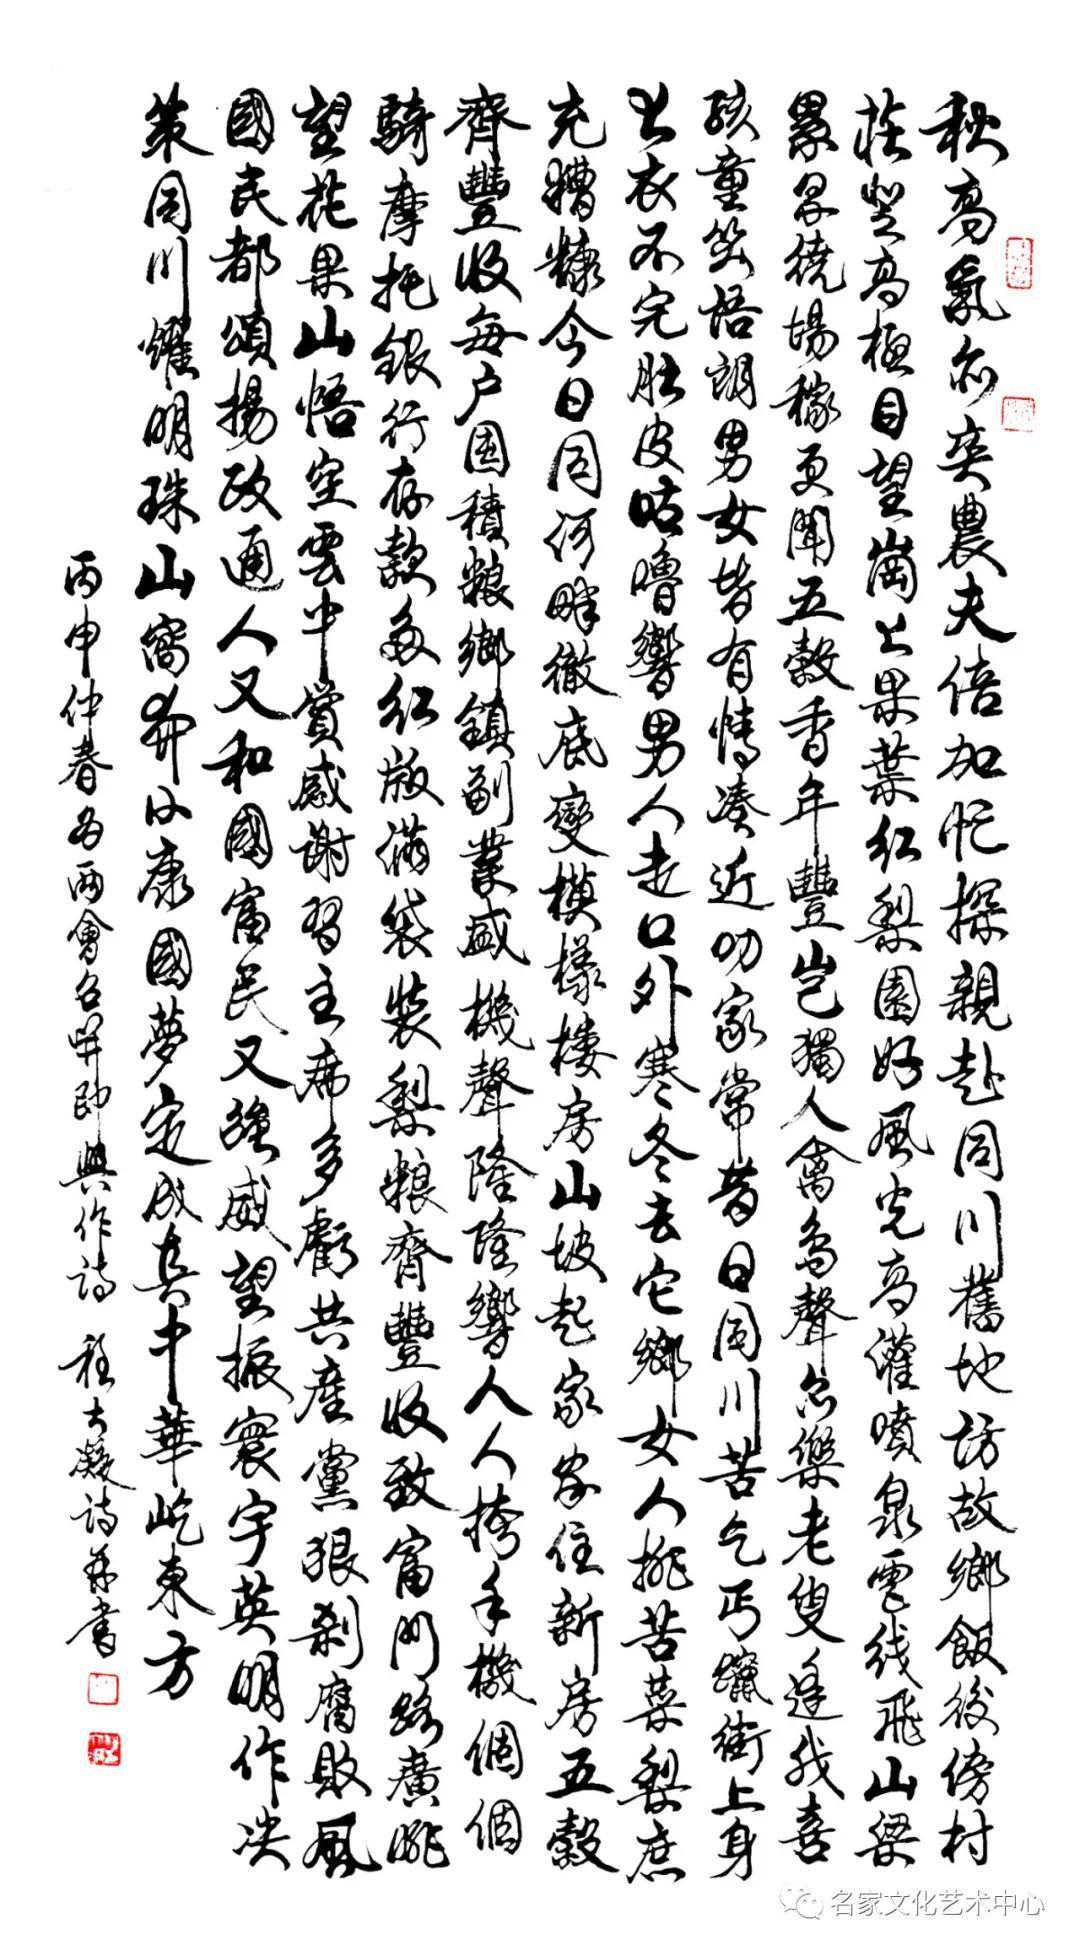 秋高氣亦爽農夫倍加忙探親赴同川舊地訪故鄉飯後傍村
莊登高極目望崗上果葉紅梨園好風光高灌噴泉電线飛山梁
累累繞場稼更聞五穀香年豐豈獨人禽鳥聲亦樂老叟逢我喜
孩童笑語朗男女皆有情凑近叨家常昔日同川苦乞丐躥街上身
上衣不完肚皮咕嚕響男人走口外寒冬去它鄉女人挑苦菜梨庶
充糟糠今日同河畔徹底變模樣楼房山坡起家家住新房五穀
齊豐收每户囤積粮鄉鎮副業盛機聲隆隆響人人挎手機個個
騎摩托銀行存款多红版满袋裝梨粮齊豐收致富門路廣眺
望花果山悟空雲中賞感謝習主席多虧共産黨狠刹腐敗風
國民都頌揚政通人又和國富民又強威望振寰宇英明作决
策同川耀明珠山窩奔小康國夢定成真中華屹東方
丙申仲春為兩會召開即興作詩 程士凝詩并書
名家文化艺术中心